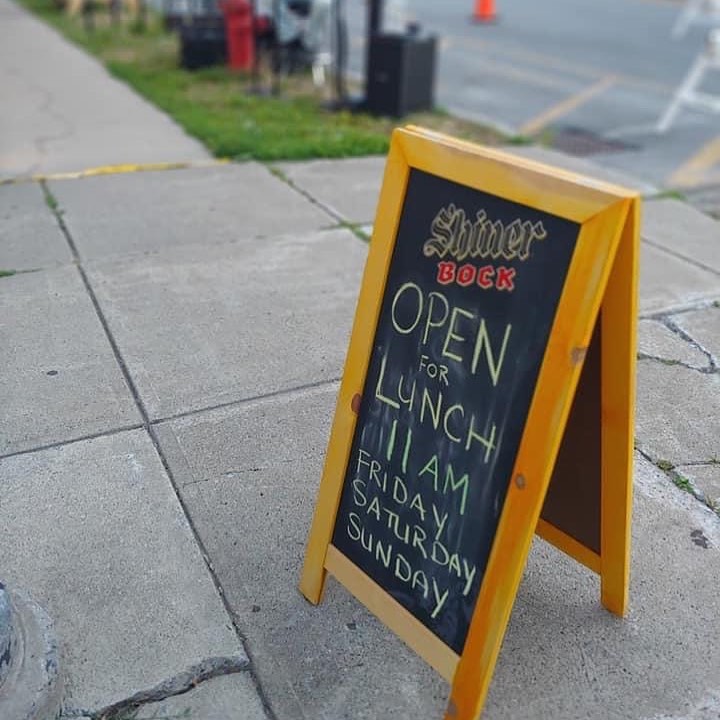 Shiner
BOCK
OPEN
FOR
LUNCH
11 AM
FRIDAY
SATURDAY
SUNDAY